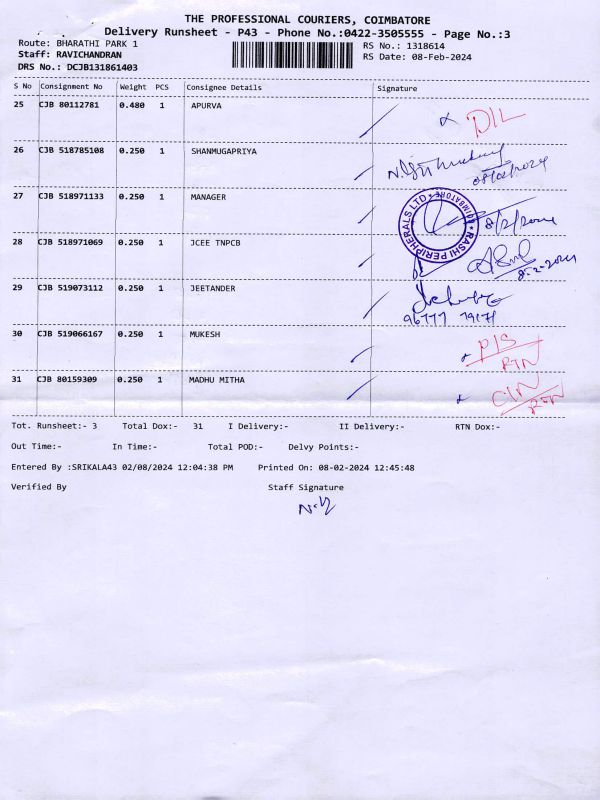 THE PROFESSIONAL COURIERS, COIMBATORE
Delivery Runsheet - P43 - Phone No.:0422-3505555 - Page No.:3
Route: BHARATHI PARK 1 RS No.: 1318614
Staff: RAVICHANDRAN RS Date: 08-Feb-2024
DRS No.: DCJB131861403
S No Consignment No Weight PCS Consignee Details Signature
25 CJB 80112781 0.480 1 APURVA D/L
26 CJB 518785108 0.250 1 SHANMUGAPRIYA 08/02/2024
27 CJB 518971133 0.250 1 MANAGER RASHI PERIPHERALS LTD ★ COIMBATORE ★ 8/2/2024
28 CJB 518971069 0.250 1 JCEE TNPCB 8-2-2024
29 CJB 519073112 0.250 1 JEETANDER
30 CJB 519066167 0.250 1 MUKESH P/S RTN
31 CJB 80159309 0.250 1 MADHU MITHA C/N RTN
Tot. Runsheet:- 3 Total Dox:- 31 I Delivery:- II Delivery:- RTN Dox:-
Out Time:- In Time:- Total POD:- Delvy Points:-
Entered By :SRIKALA43 02/08/2024 12:04:38 PM Printed On: 08-02-2024 12:45:48
Verified By Staff Signature